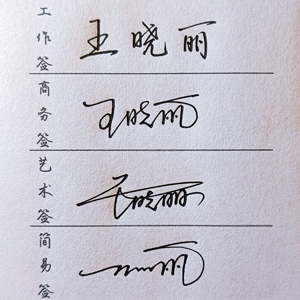 工作签 王晓丽
商务签 王晓丽
艺术签 王晓丽
简易签 王晓丽